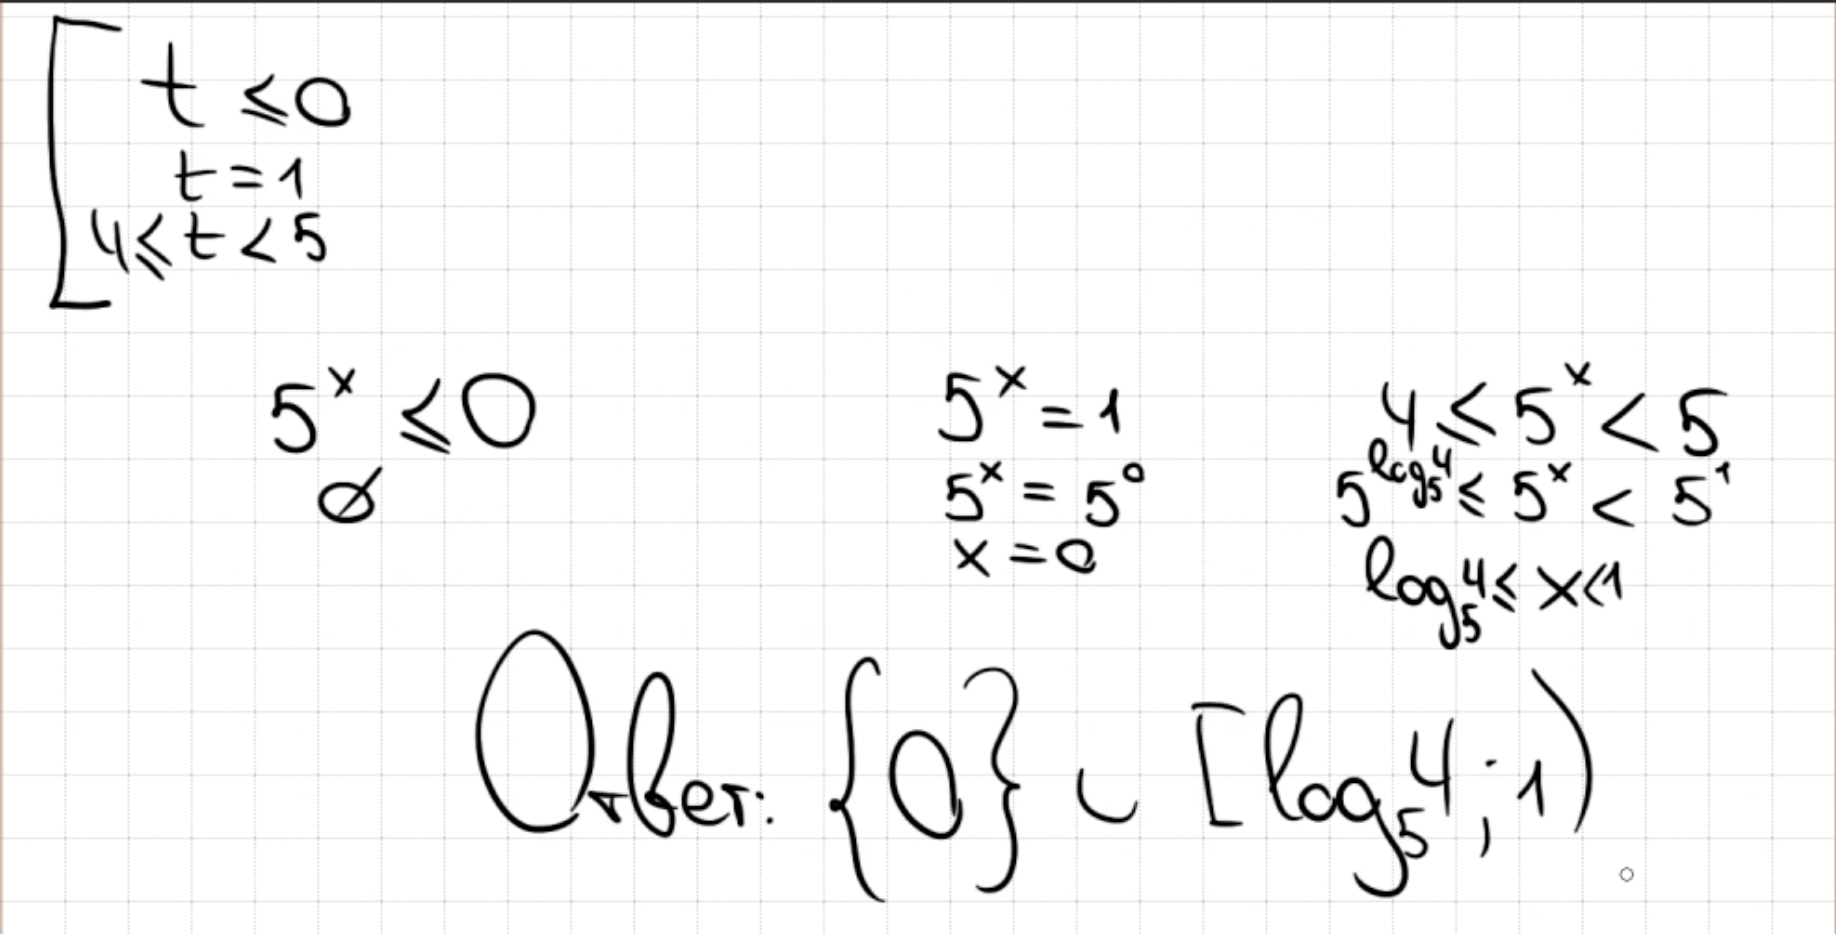 t ≤ 0
t = 1
4 ≤ t < 5
5^x ≤ 0
∅
5^x = 1
5^x = 5^0
x = 0
4 ≤ 5^x < 5
5^{log_5 4} ≤ 5^x < 5^1
log_5 4 ≤ x < 1
Ответ: {0} ∪ [log_5 4; 1)